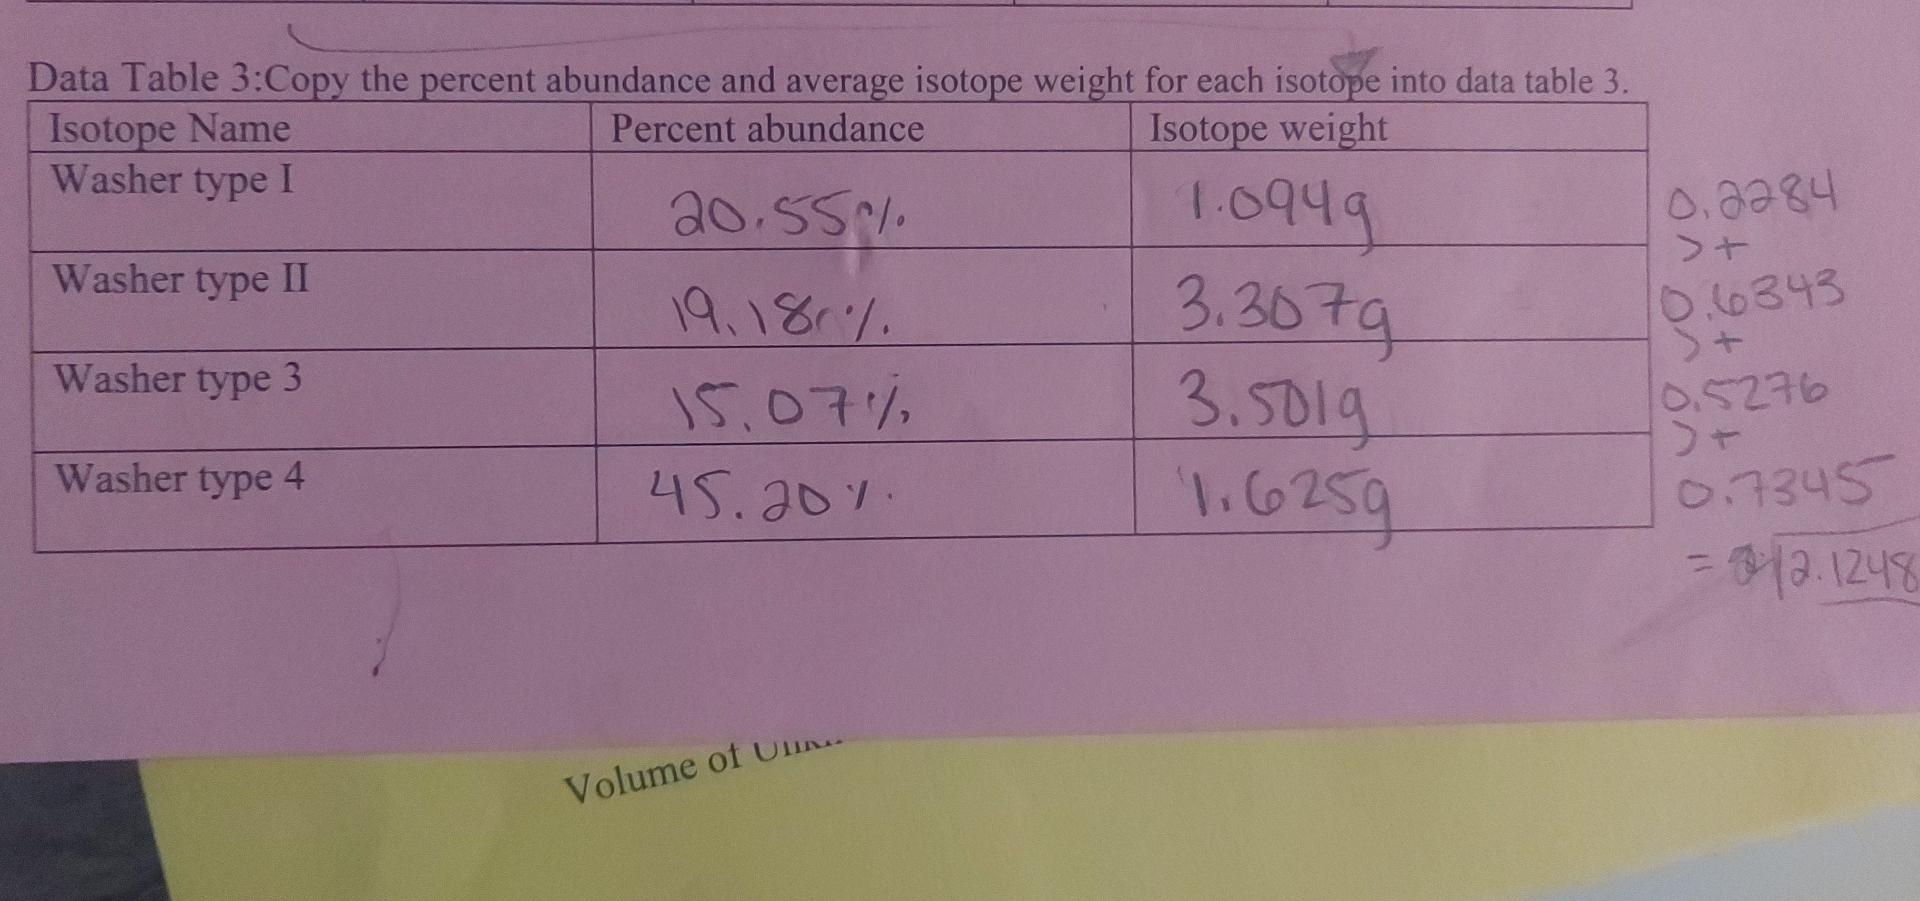 Data Table 3:Copy the percent abundance and average isotope weight for each isotope into data table 3.
Isotope Name Percent abundance Isotope weight
Washer type I 20.55% 1.094g 0.2284
>+
Washer type II 19.18% 3.307g 0.6343
>+
Washer type 3 15.07% 3.501g 0.5276
>+
Washer type 4 45.20% 1.625g 0.7345
= 2.1248
Volume of